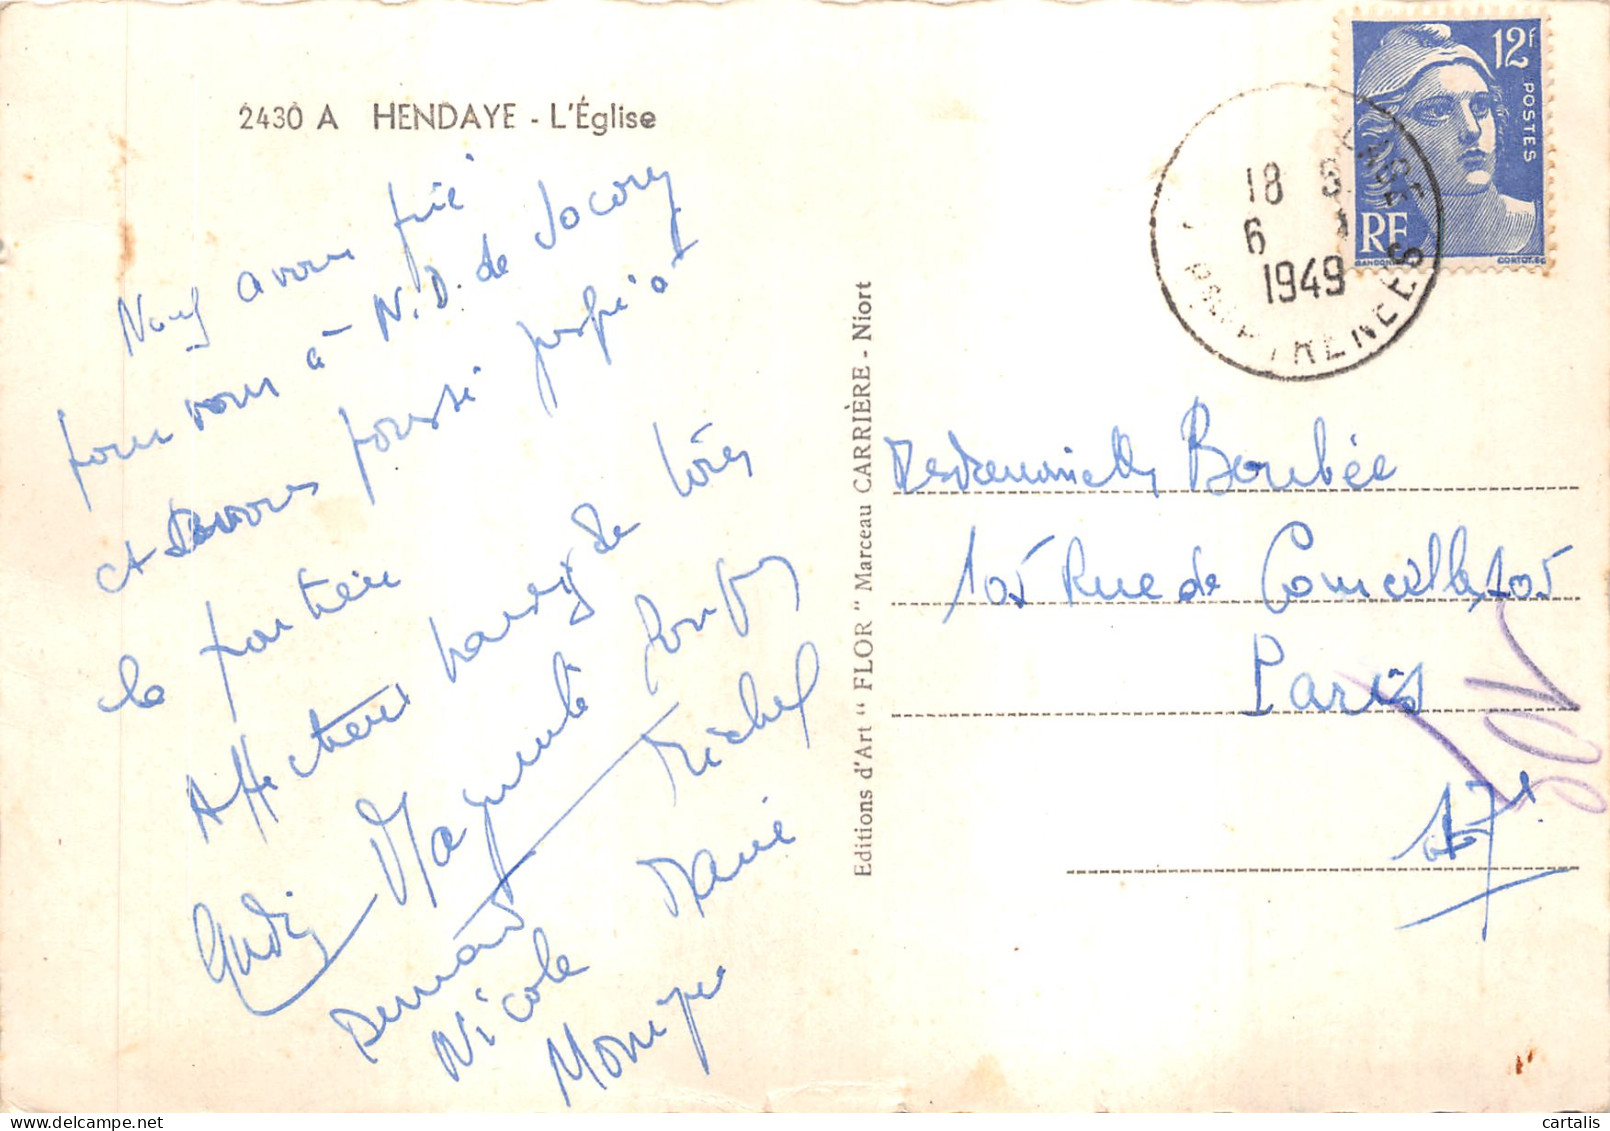 2430 A HENDAYE - L'Église
Nous avons prié
pour vous à N.D. de Socorry
et avons poussé jusqu'à
la frontière
Affectueux baisers de tous
Marguerite
Bernard Michel
Nicole Marie
Monique
Editions d'Art “ FLOR ” Marceau CARRIÈRE - Niort
12F
POSTES
RF
GANDON
CORTOT.SC
18
6
1949
PYRENEES
Mademoiselle Boubée
105 Rue de Courcelles, 105
Paris
17e
cartalis
delcampe.net